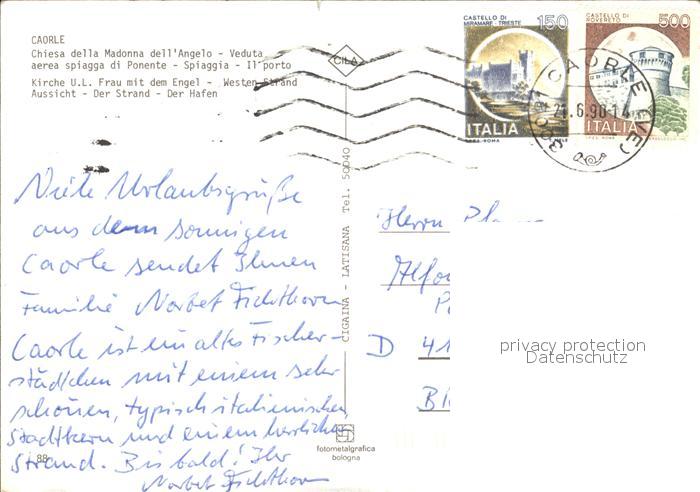 CAORLE
Chiesa della Madonna dell'Angelo - Veduta
aerea spiagga di Ponente - Spiaggia - Il porto
Kirche U.L. Frau mit dem Engel - Westen Strand
Aussicht - Der Strand - Der Hafen
CILA
CASTELLO DI
MIRAMARE - TRIESTE
150
ITALIA
CASTELLO DI
ROVERETO
500
ITALIA
CAORLE (VE)
.6.90-14
Viele Urlaubsgrüße
aus dem sonnigen
Caorle sendet Ihnen
Familie Norbet Fichthorn
Caorle ist ein altes Fischer-
städtchen mit einem sehr
schönen, typisch italienischen
Stadtkern und einem herrlichen
Strand. Bis bald! Ihr
Norbet Fichthorn
88
CIGAINA - LATISANA Tel. 50040
fotometalgrafica
bologna
Herrn
Alfo
D 41
privacy protection
Datenschutz